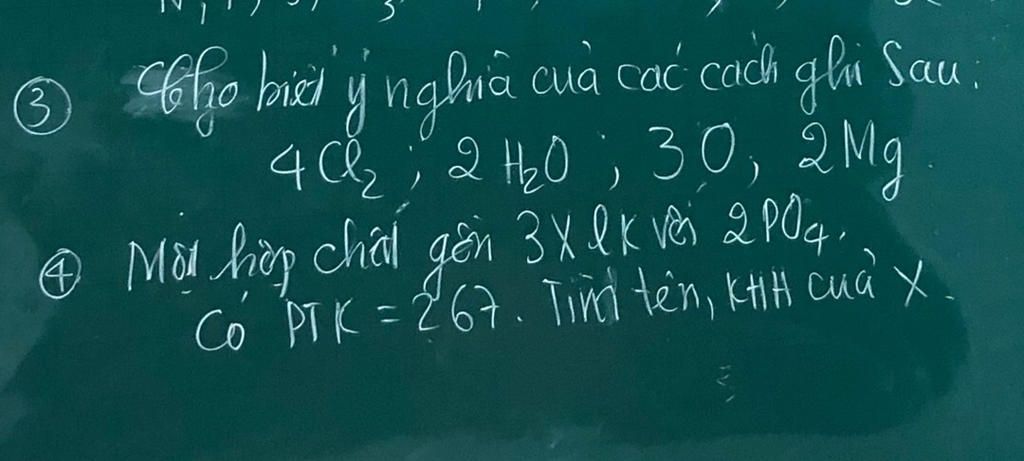 ③ Cho biết ý nghĩa của các cách ghi sau:
4Cl₂; 2H₂O; 3O; 2Mg.
④ Một hợp chất gồm 3X lk với 2PO₄.,
Có PTK = 267. Tìm tên, KHHH của X.